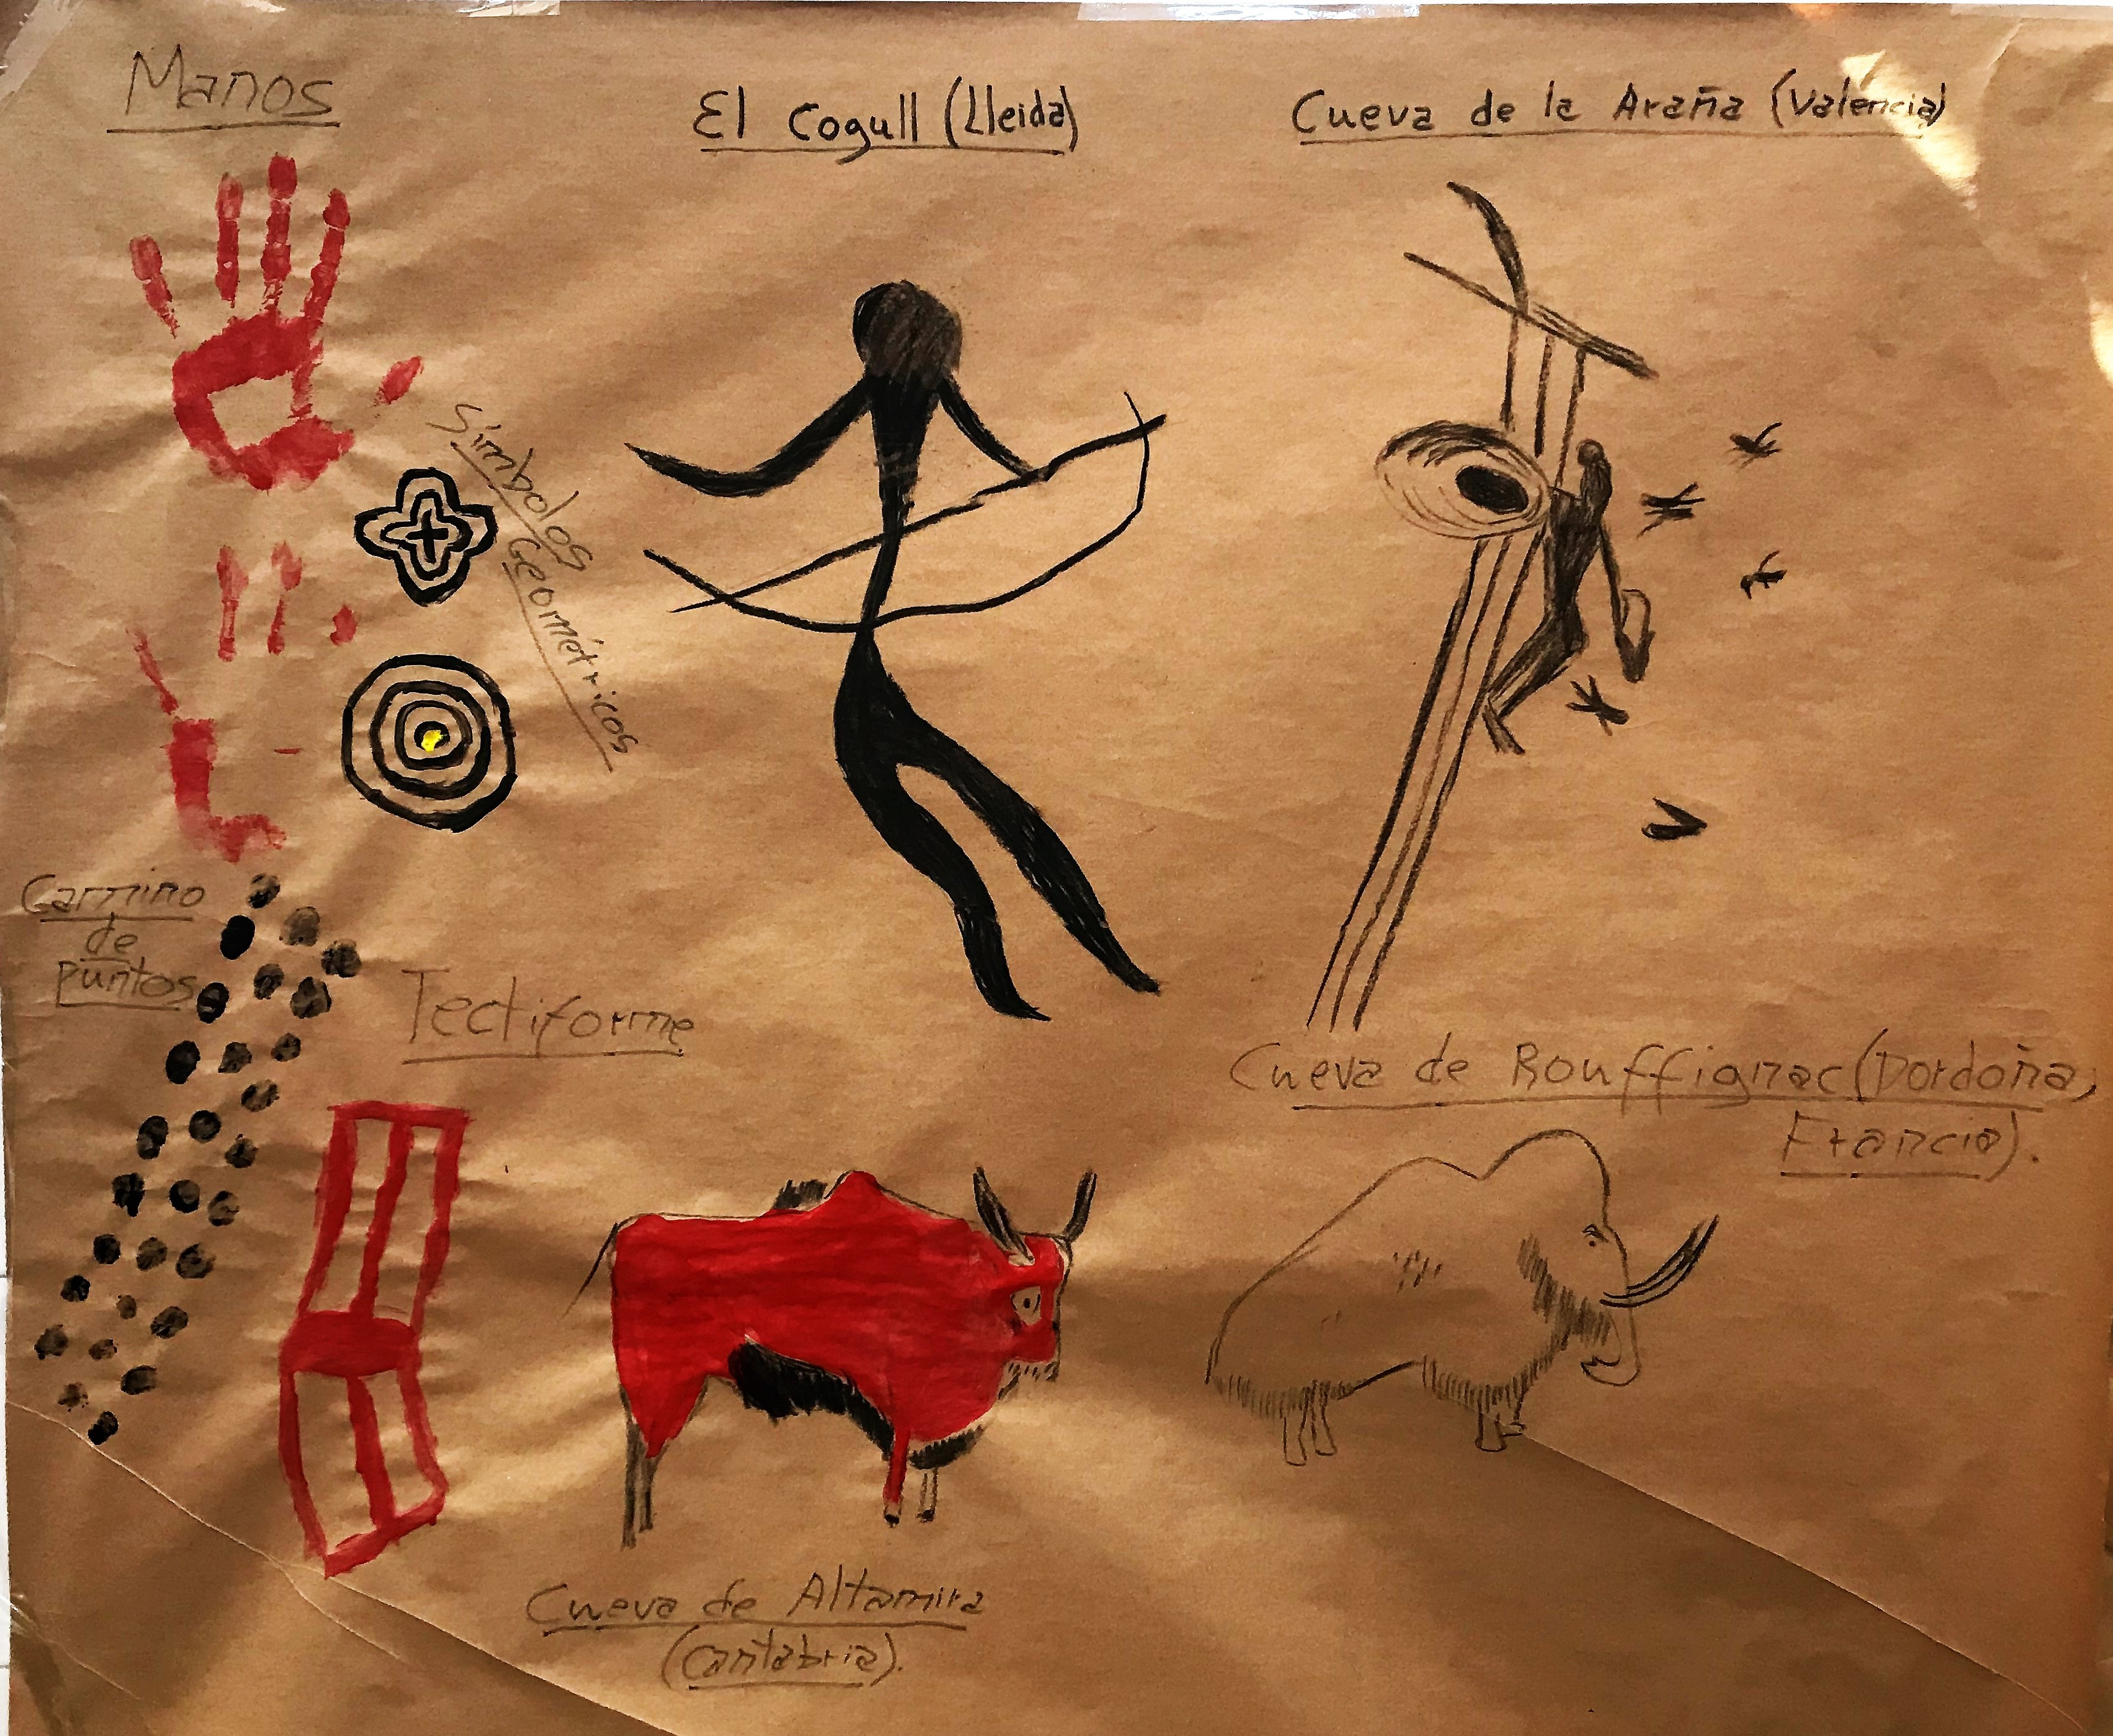 Manos
El Cogull (Lleida)
Cueva de la Araña (Valencia)
Símbolos
Geométricos
Camino
de
puntos
Tectiforme
Cueva de Rouffignac (Dordoña,
Francia).
Cueva de Altamira
(Cantabria).